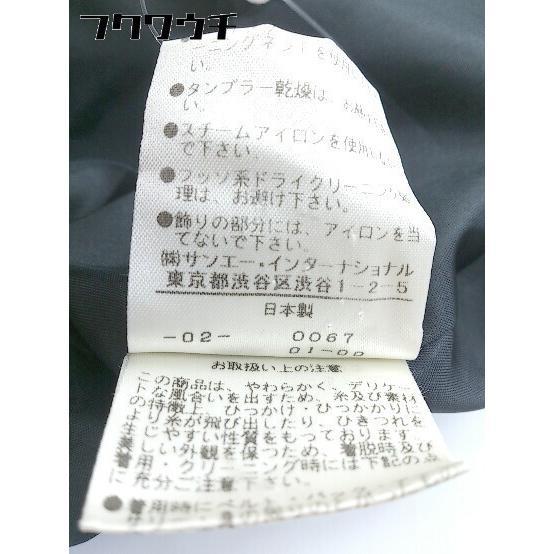 フクワウチ
ニングネットを使用
い。
●タンブラー乾燥は、お
い。
●スチームアイロンを使用
で下さい。
●フッソ系ドライクリーニング処
理は、お避け下さい。
●飾りの部分には、アイロンを当
てないで下さい。
㈱サンエー・インターナショナル
東京都渋谷区渋谷1-2-5
日本製
-02- 0067
お取扱い上の注意
この商品は、やわらかく、デリケー
トな風合いを出すため、糸及び素材
の特徴上、ひっかけ・ひっかかりに
より糸が飛び出したり、ひきつれを
生じやすい性質をもっております。
美しい外観を保つため、着脱時及び
着用・クリーニング時には下記の点
に充分ご注意下さい。
●着用時にベルト・